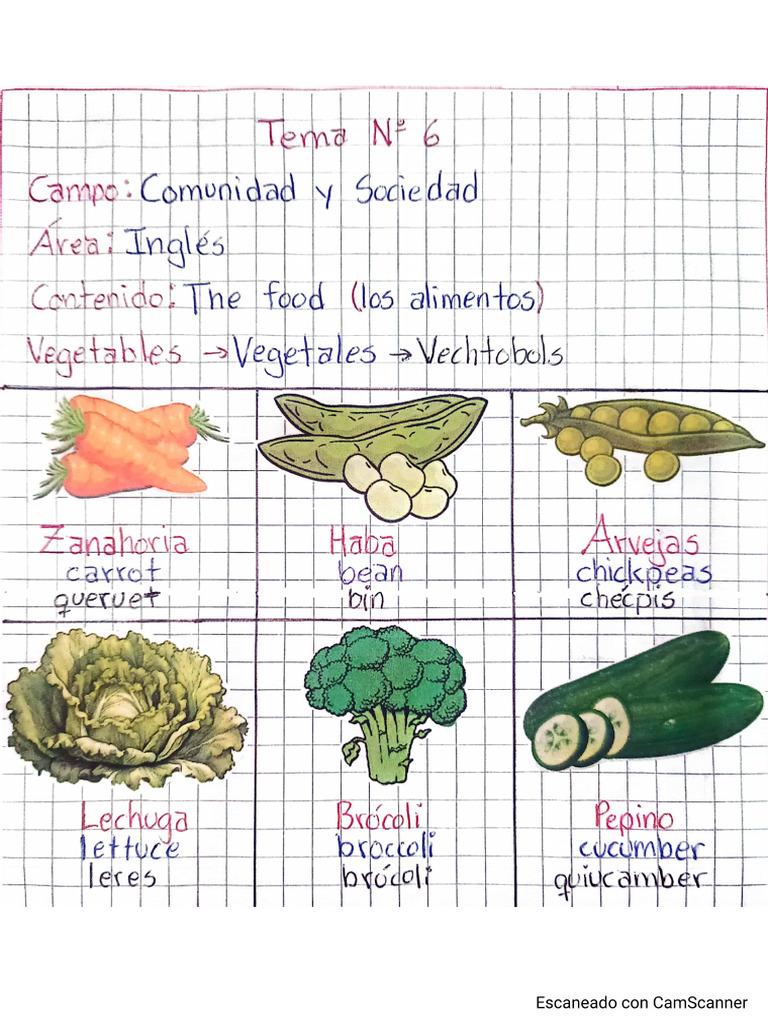 Tema Nº 6
Campo: Comunidad y Sociedad
Área: Inglés
Contenido: The food (los alimentos)
Vegetables → Vegetales → Vechtobols
Zanahoria
carrot
queruet
Haba
bean
bin
Arvejas
chickpeas
checpis
Lechuga
lettuce
leres
Brócoli
broccoli
brócoli
Pepino
cucumber
quiucamber
Escaneado con CamScanner